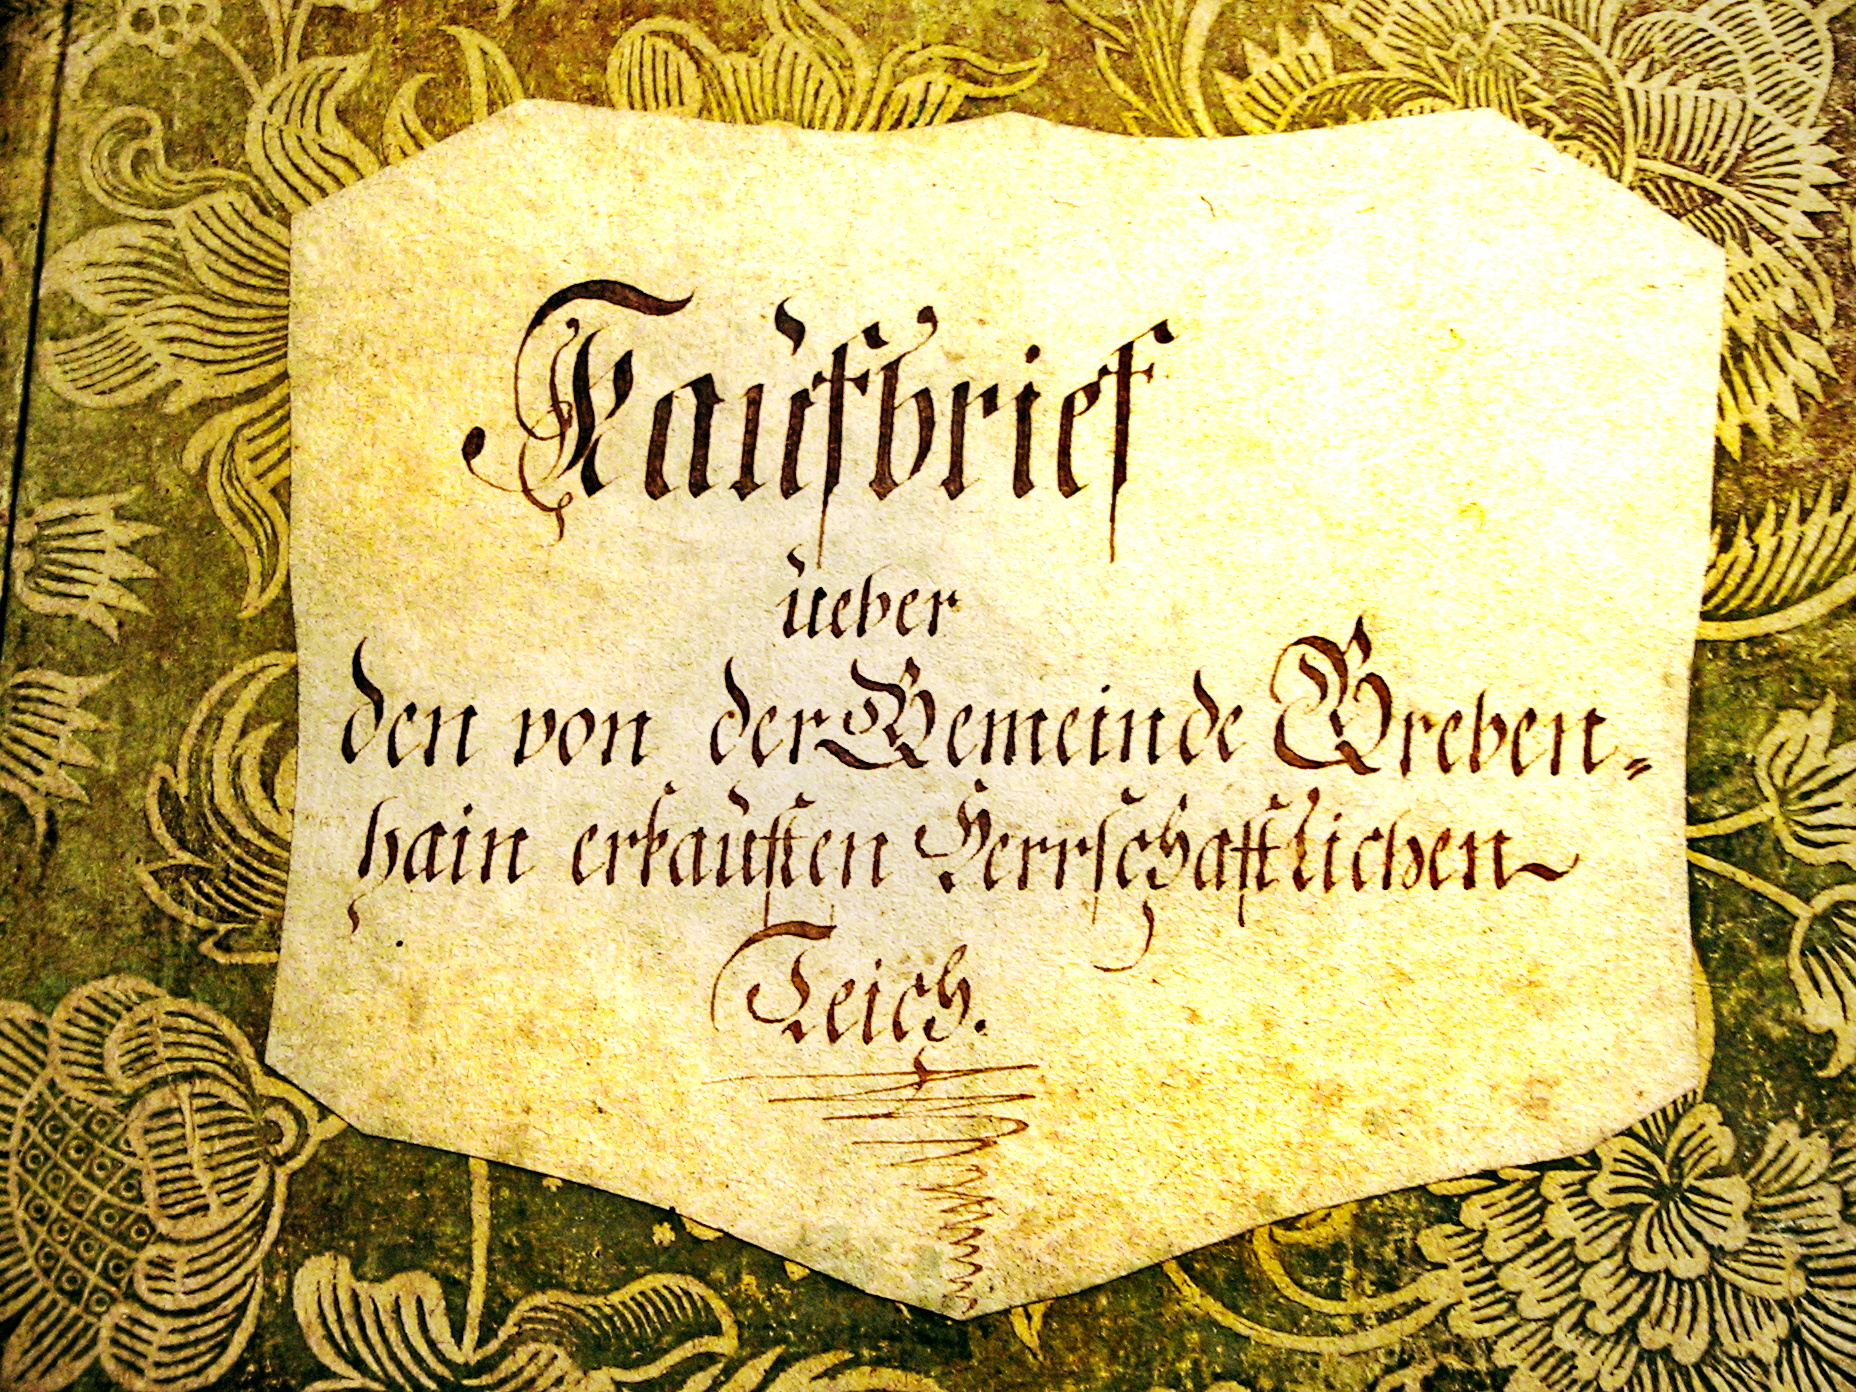 Kaufbrief
ueber
den von der Gemeinde Greben-
hain erkaufften Herrschafftlichen
Teich.